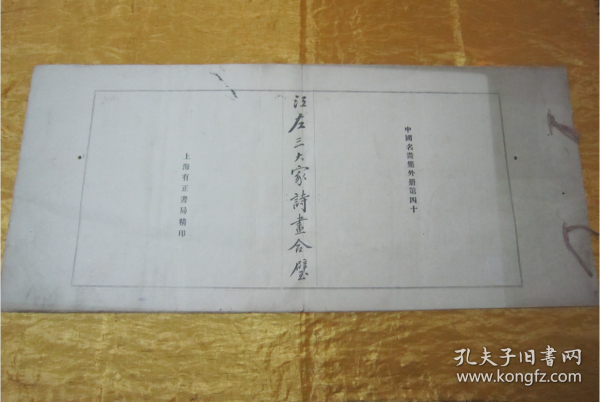 中國名畫集外冊第四十
江左三大家詩畫合璧
上海有正書局精印
孔夫子旧书网
www.kongfz.com